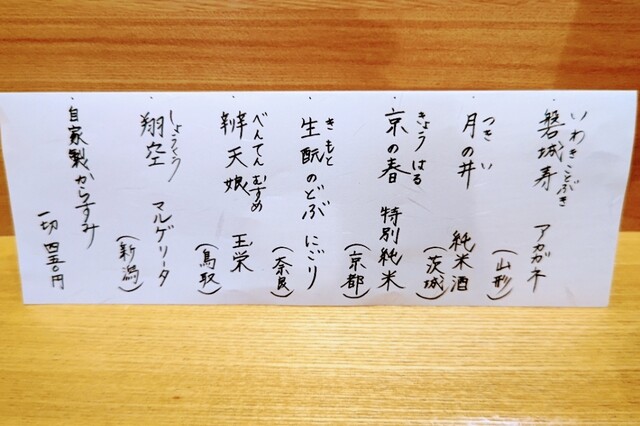 いわきことぶき
・磐城寿 アカガネ
(山形)
つき い
・月の井 純米酒
(茨城)
きょう はる
・京の春 特別純米
(京都)
き もと
・生酛のどぶ にごり
(奈良)
べんてん むすめ
・辨天娘 玉栄
(鳥取)
しょうくう
・翔空 マルゲリータ
(新潟)
・自家製からすみ
一切 四五〇円